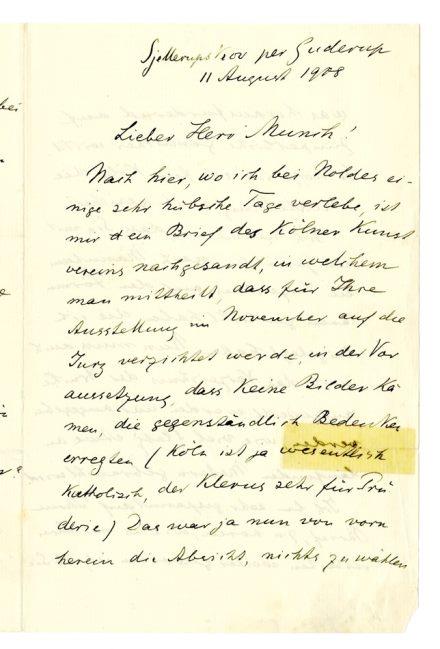 Sjellerupskov per Guderup
11 August 1908
Lieber Herr Munch!
Nach hier, wo ich bei Noldes ei-
nige sehr hübsche Tage verlebe, ist
mir ein Brief des Kölner Kunst
vereins nachgesandt, in welchem
man mittheilt, dass für Ihre
Ausstellung im November auf die
Jury verzichtet werde, in der Vor
aussetzung, dass keine Bilder kä-
men, die gegenständlich Bedenken
erregten (Köln ist ja wesentlich
Katholisch, der Klerus sehr für Prü
derie) Das war ja nun von vorn
herein die Absicht, nichts zu wählen